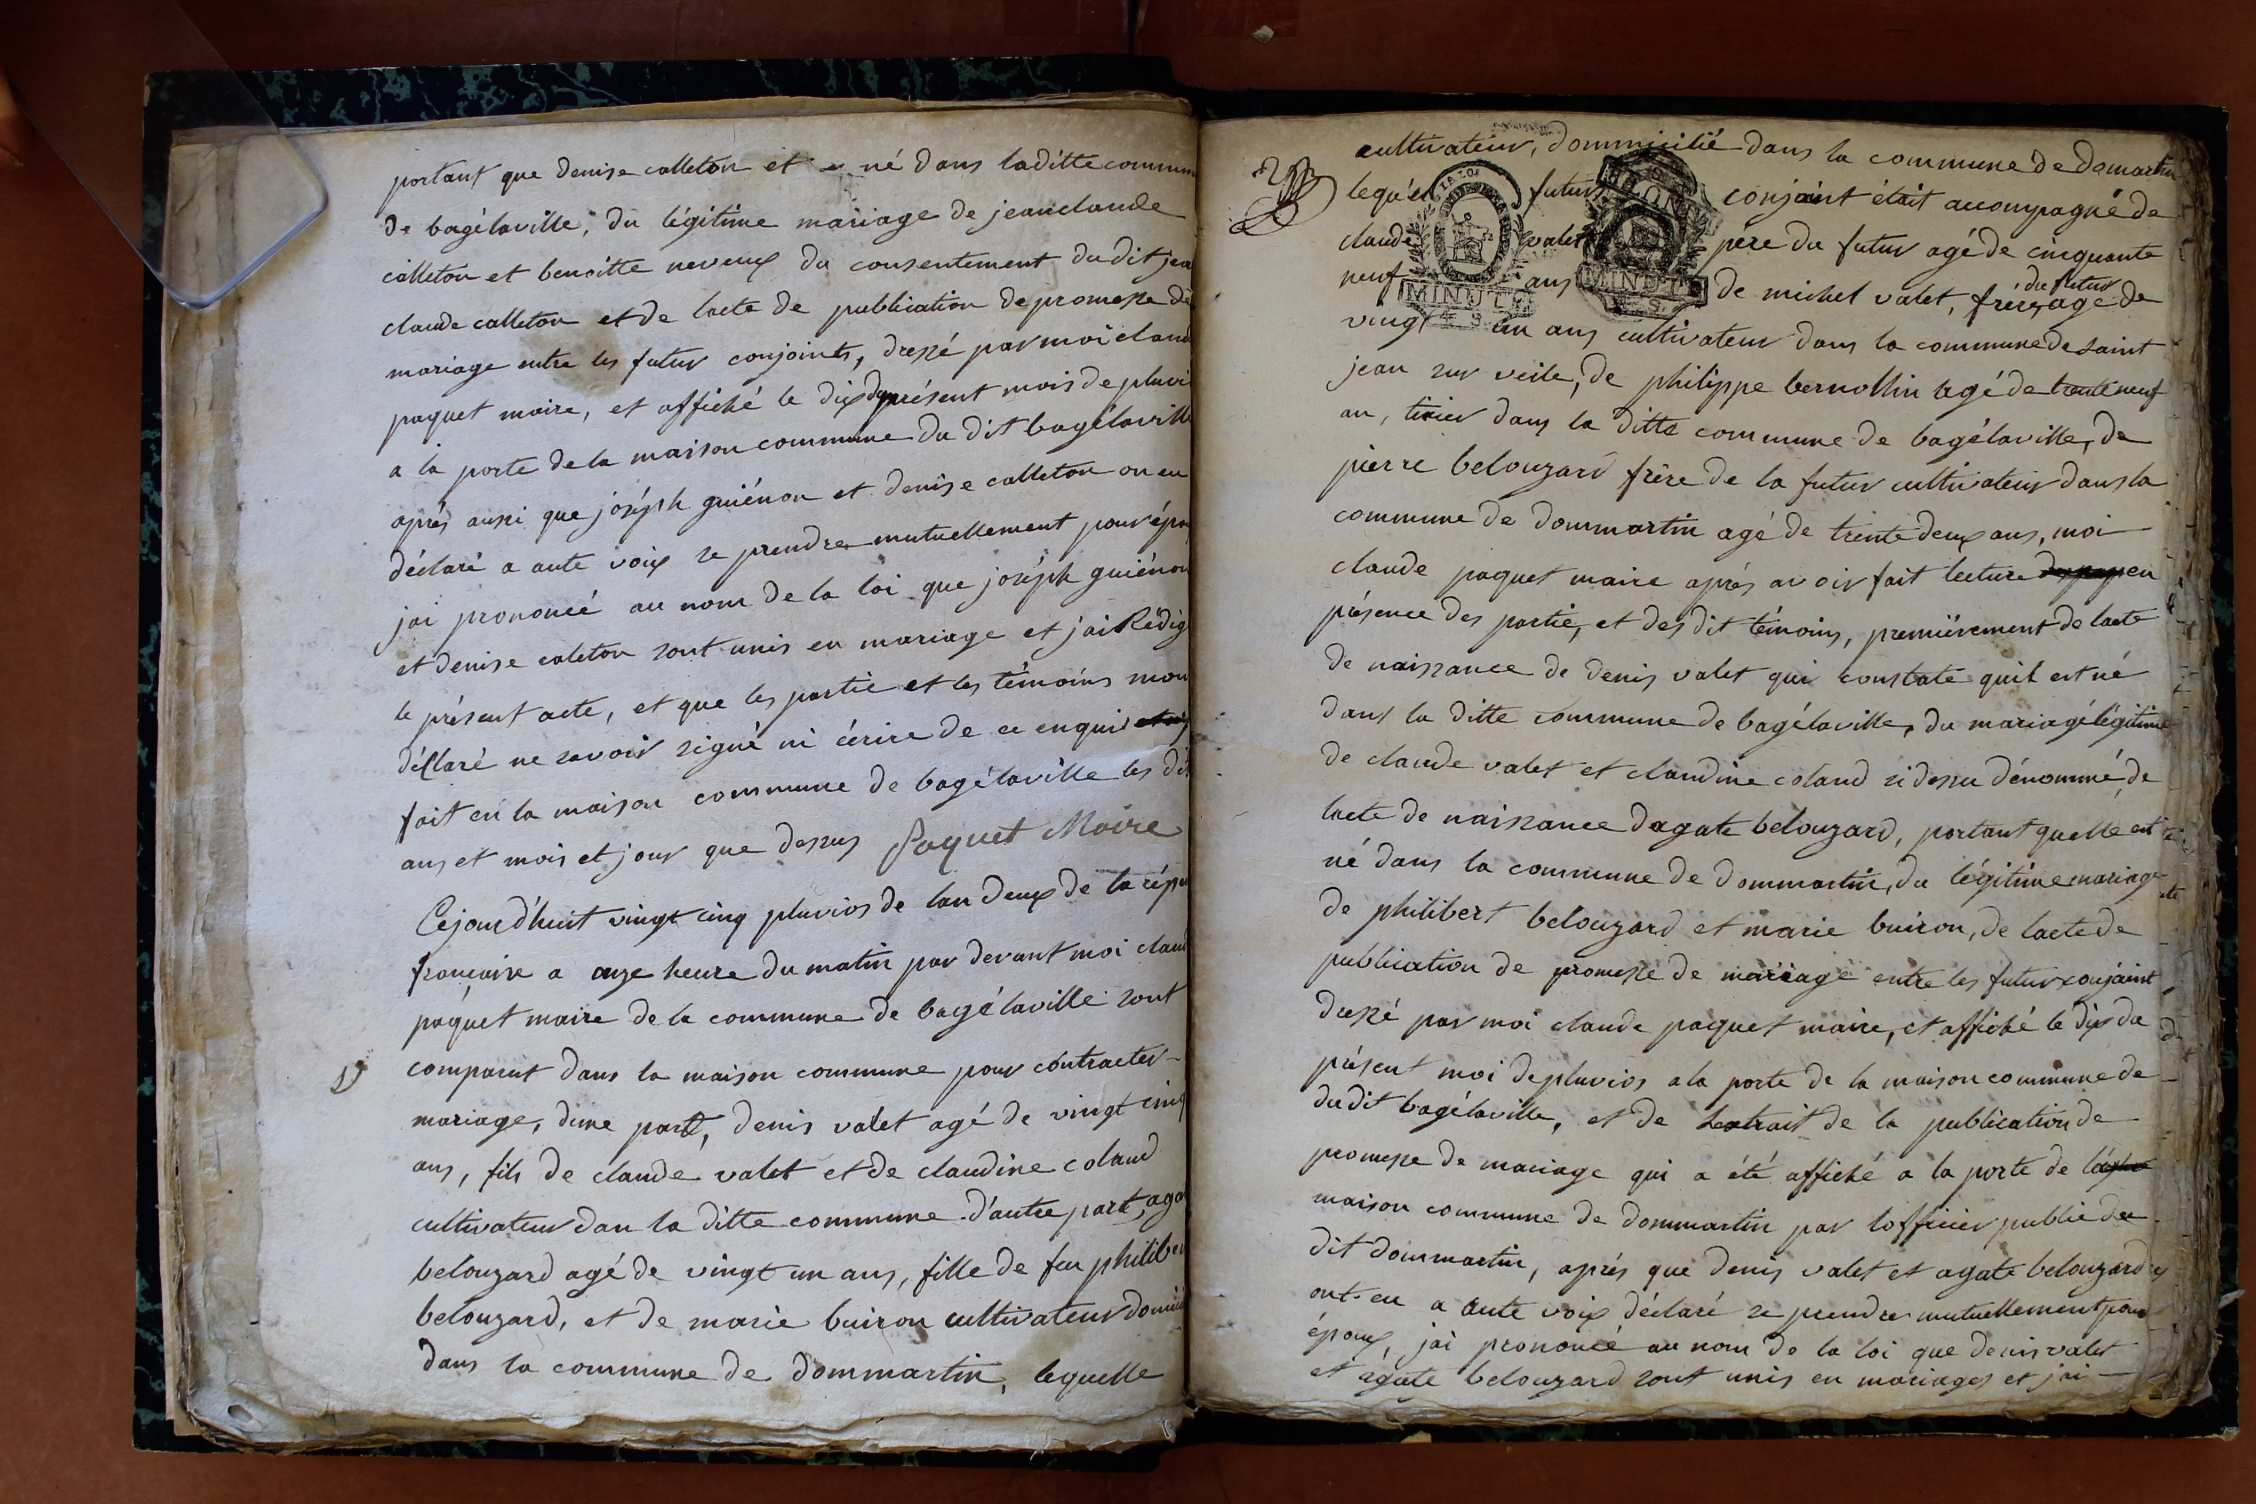 portant que denise calleton et né dans laditte commun
de bagélaville, du légitime mariage de jeanclaude
calleton et benoitte neveux du consentement du dit jea
claude calleton et de lacte de publication de promesse de
mariage entre les futur conjoints, dressé par moi claud
paquet maire, et affiché le dix du présent mois de pluvi
a la porte de la maison commune du dit bagélaville
après aussi que joséph guiénon et denise calleton on eu
déclaré a aute voix se prendre mutuellement pour épou
jai prononcé au nom de la loi que joséph guiénon
et denise caleton sont unis en mariage et jai Rédig
le présent acte, et que les partie et les témoins mon
décllaré ne savoir signé ni écrire de ce enquis
fait en la maison commune de bagélaville les dit
ans et mois et jour que dessus Paquet Maire
Cejourd'huit vingt cinq pluvios de lan deux de la répu
francaise a onze heure du matin par devant moi claud
paquet maire de la commune de bagélaville sont
comparut dans la maison commune pour contracter
mariage, dune part, denis valet agé de vingt cinq
ans, fils de claude valet et de claudine coland
cultivateur dan la ditte commune d'autre part, aga
belouzard agé de vingt un ans, fille de feu philiber
belouzard, et de marie buiron cultivateur domici
dans la commune de dommartin, lequelle
cultivateur, dommicilié dans la commune de domartin
lequel futur conjoint était accompagné de
claude valet père du futur agé de cinquante
neuf ans de michel valet, frère du futur agé de
vingt un ans cultivateur dans la commune de saint
jean sur veile, de philippe bernollin agé de trente neuf
an, tixier dans la ditte commune de bagélaville, de
pierre belouzard frère de la futur cultivateur dans la
commune de dommartin agé de trente deux ans, moi
claude paquet maire après avoir fait lecture en
présence des partie, et des dit témoins, premiérement de lacte
de naissance de denis valet qui constate quil est né
dans la ditte commune de bagélaville, du mariagé légitime
de claude valet et claudine coland si dessu dénommé, de
lacte de naissance dagate belouzard, portant quelle est
né dans la commune de dommartin, du légitime mariage
de philibert belouzard et marie buiron, de lacte de
publication de promesse de mariage entre les futur conjoint
dressé par moi claude paquet maire, et affiché le dix du
présent moi depluvios a la porte de la maison commune de
du dit bagélaville, et de lextrait de la publication de
promesse de mariage qui a été affiché a la porte de la
maison commune de dommartin par lofficier public du
dit dommartin, après que denis valet et agate belouzard
ont eu a aute voix déclaré se prendre mutuellement pour
époux, jai prononcé au nom de la loi que denis valet
et agate belouzard sont unis en mariages et jai
LA LOI
MINUTE
MINUTE